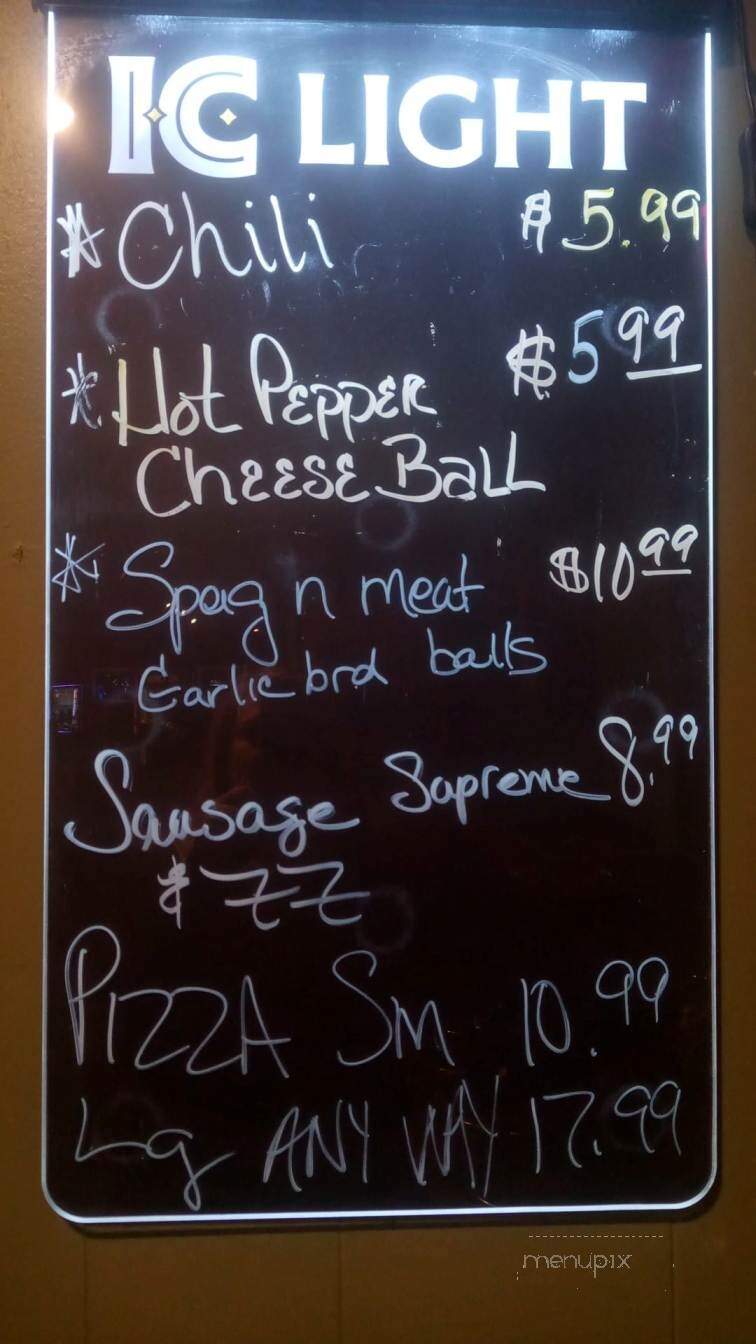 IC LIGHT
* Chili $5.99
* Hot PEPPER $5 99
CHEESE BALL
* Spag n meat $10 99
Garlic brd balls
Sausage Supreme 8.99
& ZZ
PIZZA Sm 10.99
Lg ANY WAY 17.99
menupix